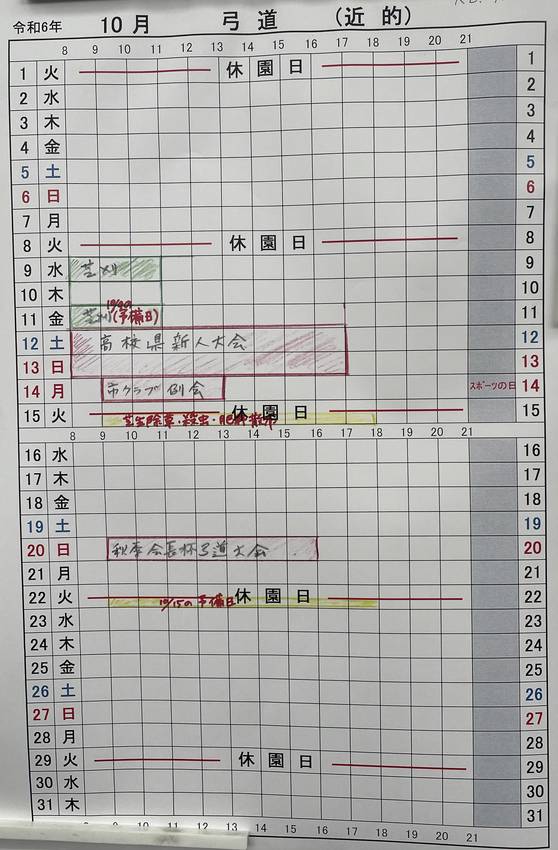 令和6年 10月 弓道 (近的)
8 9 10 11 12 13 14 15 16 17 18 19 20 21
1 火 休園日 1
2 水 2
3 木 3
4 金 4
5 土 5
6 日 6
7 月 7
8 火 休園日 8
9 水 芝刈 9
10 木 10
10/9の
11 金 芝刈(予備日) 11
12 土 高校県新人大会 12
13 日 13
14 月 市クラブ例会 スポーツの日 14
15 火 休園日 15
芝生除草・殺虫・肥料散布
8 9 10 11 12 13 14 15 16 17 18 19 20 21
16 水 16
17 木 17
18 金 18
19 土 19
20 日 秋季会長杯弓道大会 20
21 月 21
22 火 休園日 22
10/15の予備日
23 水 23
24 木 24
25 金 25
26 土 26
27 日 27
28 月 28
29 火 休園日 29
30 水 30
31 木 31
8 9 10 11 12 13 14 15 16 17 18 19 20 21